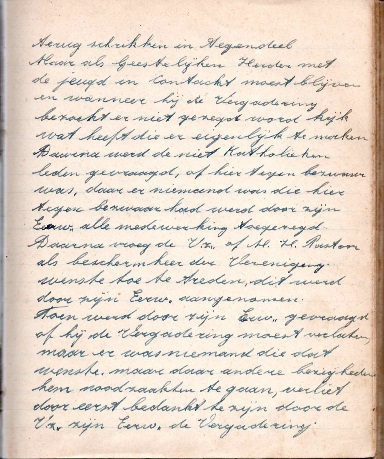 terug schrikken in tegendeel
Maar als Geestelijken Herder met
de jeugd in Contackt moest blijven
en wanneer hij de Vergadering
bezocht er niet gezegt word kijk
wat heeft die er eigenlijk te maken
Daarna werd de niet Katholieken
leden gevraagd, of hier tegen bezwaar
was, daar er niemand was die hier
tegen bezwaar had werd door zijn
Eerw. alle medewerking toegezegd.
Daarna vroeg de Vz. of M. H. Pastoor
als beschermheer der Vereniging
wenste toe te treden, dit werd
door zijn Eerw. aangenomen.
Toen werd door zijn Eerw. gevraagd
of hij de Vergadering moest verlaten,
maar er was niemand die dat
wenste. maar daar andere bezigheden
hem noodzaakten te gaan, verliet
door eerst bedankt te zijn door de
Vz. zijn Eerw. de Vergadering.